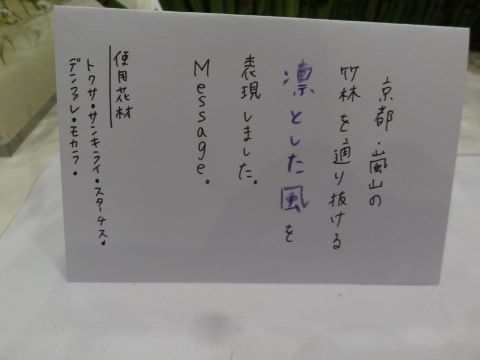 京都・嵐山の
竹林を通り抜ける
凛とした風を
表現しました。
Message。
使用花材
トクサ・サンキライ・スターチス・
デンファレ・モカラ・